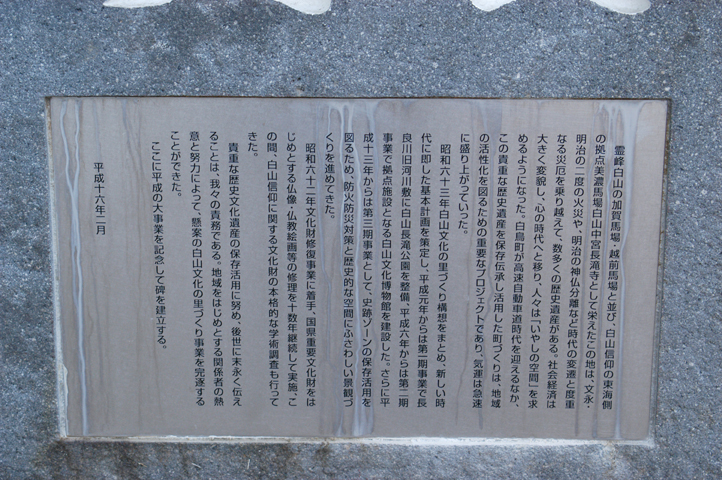 霊峰白山の加賀馬場・越前馬場と並び、白山信仰の東海側
の拠点美濃馬場白山中宮長滝寺として栄えたこの地は、文永・
明治の二度の火災や、明治の神仏分離など時代の変遷と度重
なる災厄を乗り越えて、数多くの歴史遺産がある。社会経済は
大きく変貌し、心の時代へと移り、人々は「いやしの空間」を求
めるようになった。白鳥町が高速自動車道時代を迎えるなか、
この貴重な歴史遺産を保存伝承し活用した町づくりは、地域
の活性化を図るための重要なプロジェクトであり、気運は急速
に盛り上がっていった。
昭和六十三年白山文化の里づくり構想をまとめ、新しい時
代に即した基本計画を策定し、平成元年からは第一期事業で長
良川旧河川敷に白山長滝公園を整備、平成六年からは第二期
事業で拠点施設となる白山文化博物館を建設した。さらに平
成十三年からは第三期事業として、史跡ゾーンの保存活用を
図るため、防火防災対策と歴史的な空間にふさわしい景観づ
くりを進めてきた。
昭和六十二年文化財修復事業に着手、国県重要文化財をは
じめとする仏像・仏教絵画等の修理を十数年継続して実施、こ
の間、白山信仰に関する文化財の本格的な学術調査も行って
きた。
貴重な歴史文化遺産の保存活用に努め、後世に末永く伝え
ることは、我々の責務である。地域をはじめとする関係者の熱
意と努力によって、懸案の白山文化の里づくり事業を完遂する
ことができた。
ここに平成の大事業を記念して碑を建立する。
平成十六年二月